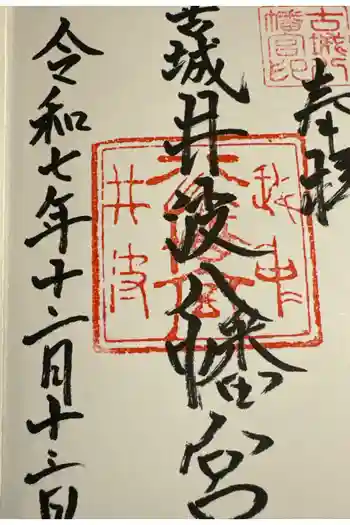 奉拝
古城井波八幡宮
令和七年十二月十三日
古城
幡宮印
越中
井波